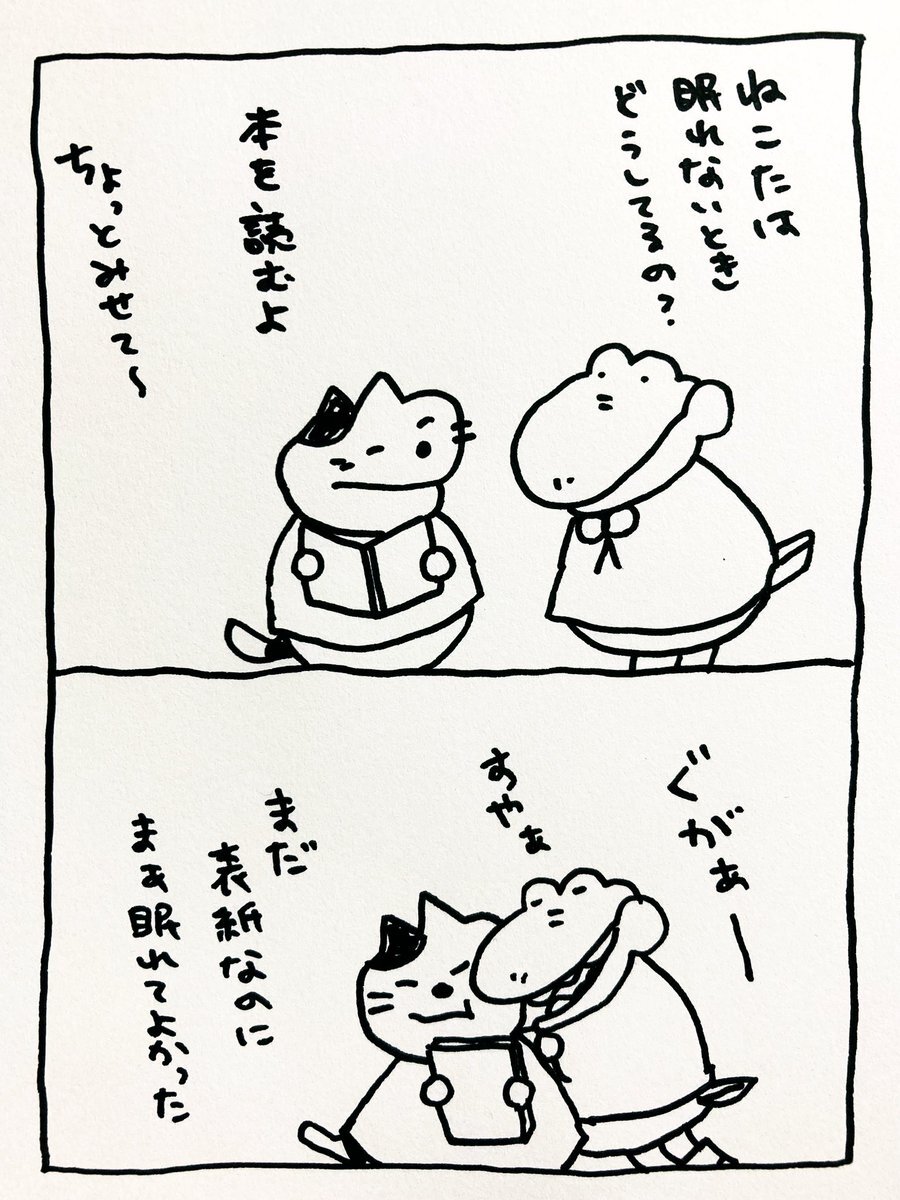 ねこたは
眠れないとき
どうしてるの?
本を読むよ
ちょっとみせて〜
ぐがぁー
すやぁ
まだ
表紙なのに
まぁ眠れてよかった